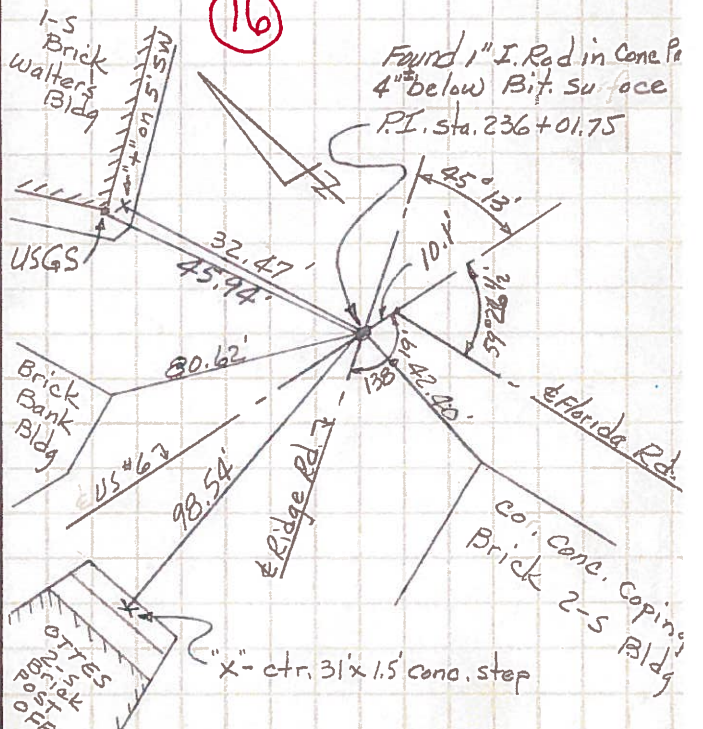 16
1-S
Brick
Walters
Bldg
"+" on 5' SW
Found 1" I. Rod in Conc
4"± below Bit. Su face
P.I. sta. 236+01.75
N
45° 13'
10.1'
USGS
32.47'
45.94'
59° 26 1/2'
80.62'
138° 19'
42.40'
Brick
Bank
Bldg
℄ US #6
98.54'
℄ Ridge Rd.
℄ Florida Rd.
Cor. Conc. Coping
Brick 2-S Bldg
"X" - ctr. 31' x 1.5' conc. step
2-S
Brick
POST
OFF